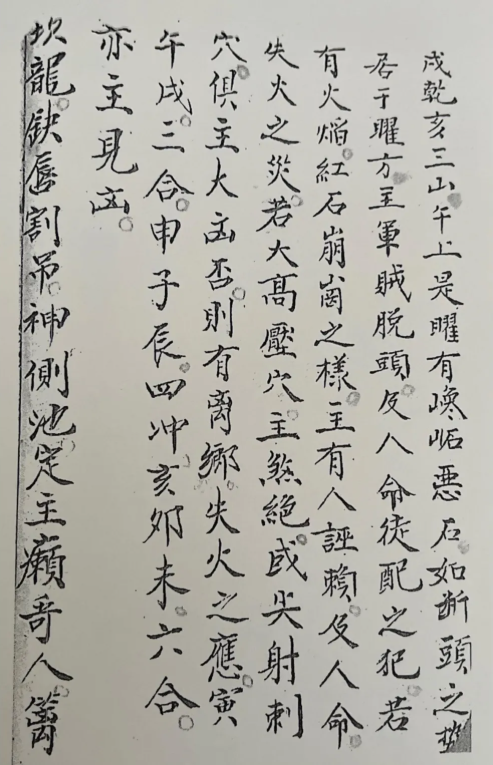 戌乾亥三山午上是曜有巉岩恶石如断頭之势
居于曜方主軍賊脱頭及人命徒配之犯若
有火焰紅石崩崗之様主有人誣賴及人命
失火之災若大高壓穴主煞絶或尖射刺
穴俱主大凶否則有离鄉失火之應寅
午戌三合申子辰四冲亥卯未六合
亦主見凶
坎龍缺唇割吊神側池定主癩奇人篱